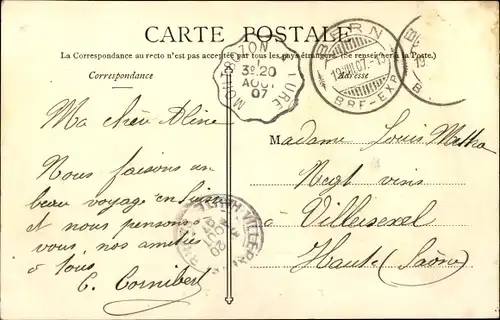 CARTE POSTALE
La Correspondance au recto n'est pas acceptée par tous les pays étrangers (Se renseigner à la Poste.)
Correspondance
Adresse
BERN
19.VIII.07.
BRF-EXP.
MOR ZON
LURE
3E 20
AOUT
07
Ma chère Aline
Nous faisons un
beau voyage en Suisse
et nous pensons à
vous, nos amitiés
à tous
C. Cornibert
Madame Louis
Negt vins
à Villersexel
Haute (Saône)
VILLERSEXEL
20